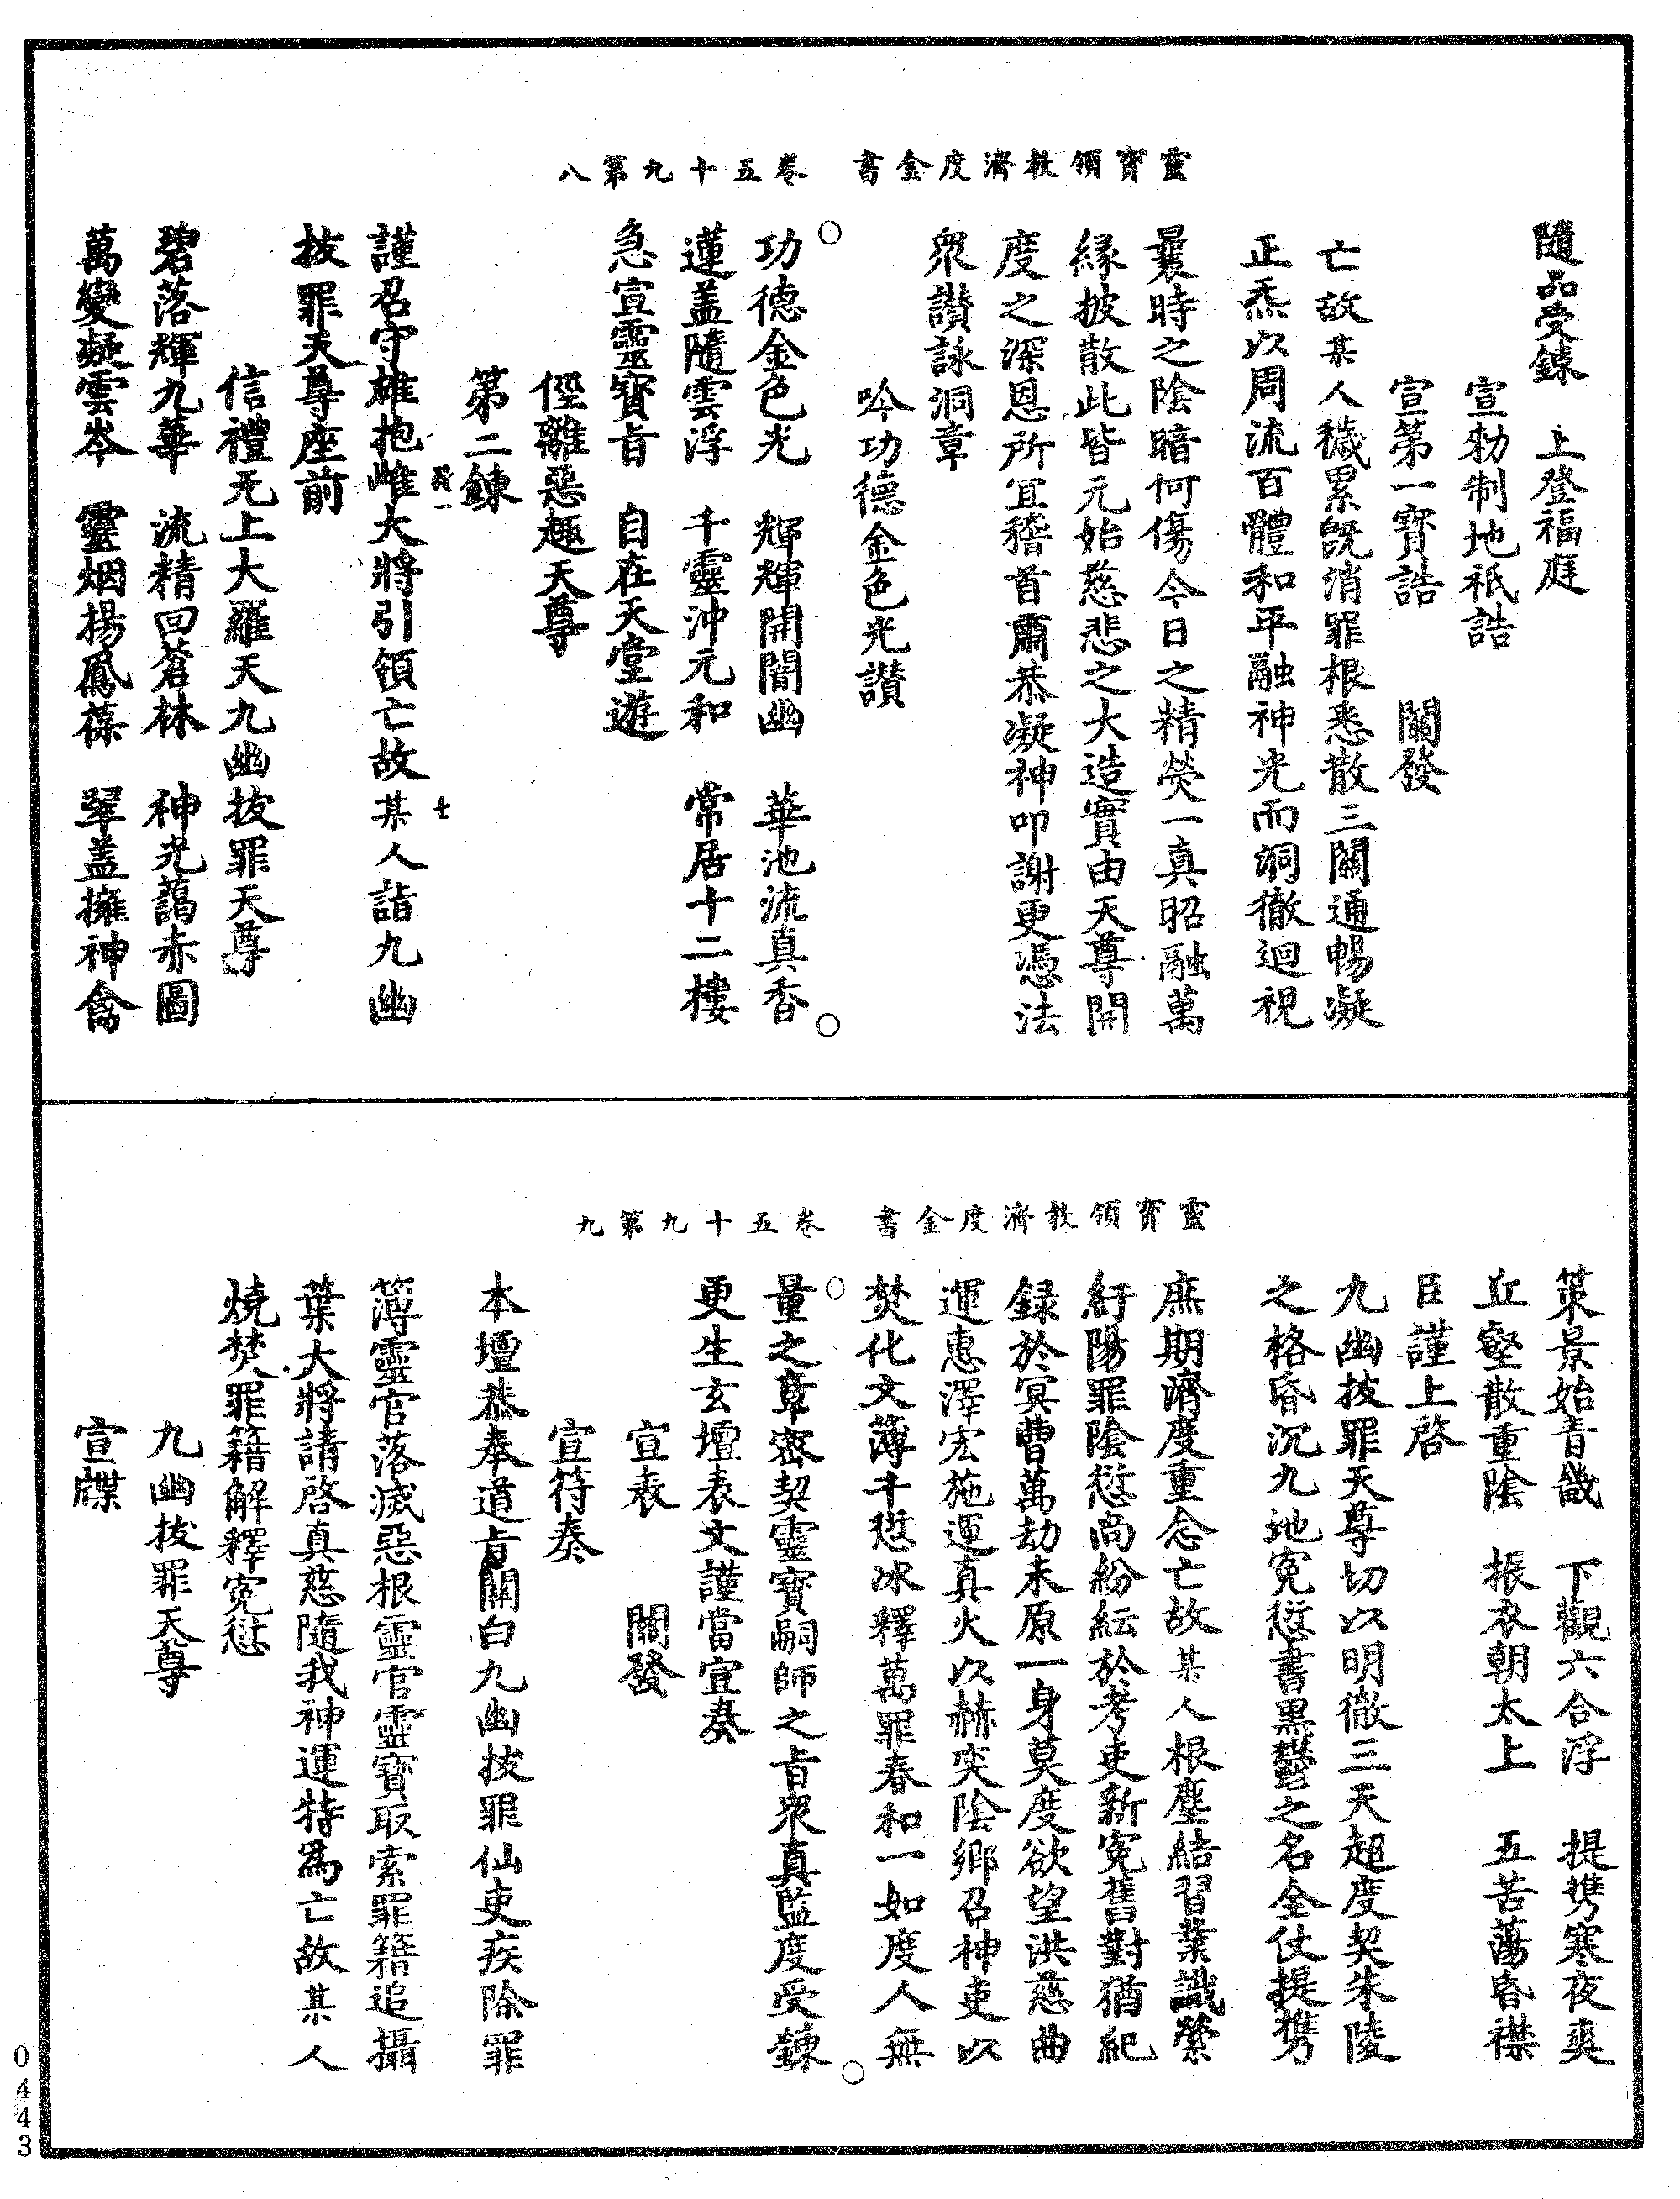 靈寶領教濟度金書　卷五十九第八
隨品受鍊　上登福庭
宣勑制地祇誥
宣第一寶誥　關發
亡故某人穢累旣消罪根悉散三關通暢凝
正炁以周流百體和平融神光而洞徹迴視
曩時之陰暗何傷今日之精熒一真昭融萬
緣披散此皆元始慈悲之大造實由天尊開
度之深恩所宜稽首肅恭凝神叩謝更憑法
衆讃詠洞章
吟功德金色光讃
功德金色光　輝輝開闇幽　華池流真香
蓮盖隨雲浮　千靈沖元和　常居十二樓
急宣靈寶旨　自在天堂遊
俓離惡趣天尊
第二鍊
謹召守雄抱雌大將引領亡故某人詣九幽
七
拔罪天尊座前
信禮无上大羅天九幽拔罪天尊
碧落輝九華　流精回蒼林　神光藹赤圖
萬變凝雲岑　靈烟揚鳳葆　翠盖擁神禽
靈寶領教濟度金書　卷五十九第九
策景始青畿　下觀六合浮　提携寒夜爽
丘壑散重陰　振衣朝太上　五苦蕩昏襟
臣謹上啓
九幽拔罪天尊切以明徹三天超度契朱陵
之格昏沉九地寃愆書黑鬱之名全仗提携
庶期濟度重念亡故某人根塵結習業識縈
紆陽罪陰愆尚紛紜於考吏新寃舊對猶紀
録於冥曹萬劫未原一身莫度欲望洪慈曲
運惠澤宏施運真火以赫突陰鄉召神吏以
焚化文薄千愆冰釋萬罪春和一如度人無
量之章密契靈寶嗣師之旨衆真監度受鍊
更生玄壇表文謹當宣奏
宣表　關發
宣符奏
本壇恭奉道旨關白九幽拔罪仙吏疾除罪
簿靈官落滅惡根靈官靈寶取索罪籍追攝
葉大將請啓真慈隨我神運特爲亡故某人
燒焚罪籍解釋寃愆
九幽拔罪天尊
宣牒
0443